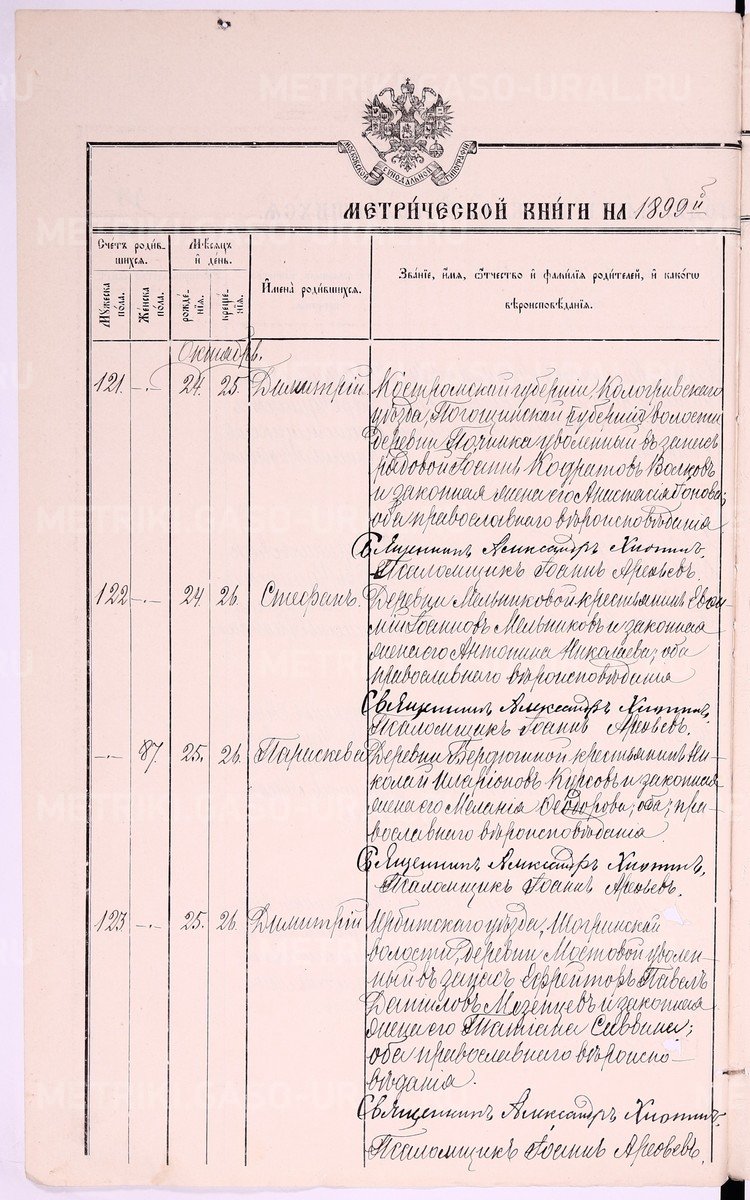 МОСКОВСКОЙ СѴНОДАЛЬНОЙ ТИПОГРАФІИ
МЕТРИ́ЧЕСКОЙ КНИ́ГИ НА 1899й
Счетъ роди́вшихся.
Мужеска пола.
Женска пола.
Мѣсяцъ и день.
рожде́нія.
креще́нія.
Имена̀ роди́вшихся.
Зва́ніе, и́мя, ѻ́тчество и фами́лія роди́телей, и како́гѡ вѣроисповѣ́данія.
Октябрь.
121. —.— 24. 25. Димитрій. Костромской губерніи, Кологривскаго
уѣзда, волости
деревни Починка уволенный въ запасъ
рядовой Іоаннъ Кодратовъ Волковъ
и законная жена его Анастасія
оба православнаго вѣроисповѣданія
Священникъ Александръ
Псаломщикъ Іоаннъ Арефьевъ.
122 —.— 24 26. Стефанъ. Деревни Мельниковой крестьянинъ Евѳи-
мій Іоанновъ Мельниковъ и законная
жена его Антонина Николаева; оба
православнаго вѣроисповѣданія
Священникъ Александръ
Псаломщикъ Іоаннъ Арефьевъ.
—.— 87. 25. 26. Параскева Деревни Бердюгиной крестьянинъ Ни-
колай Иларіоновъ Курсовъ и законная
жена его Меланія Ѳеодорова; оба пра-
вославнаго вѣроисповѣданія
Священникъ Александръ
Псаломщикъ Іоаннъ Арефьевъ.
123. —.— 25. 26. Димитрій Ирбитскаго уѣзда, Шогринской
волости, деревни Мостовой уволен-
ный въ запасъ Ефрейторъ Павелъ
Даниловъ Мезенцевъ и законная
жена его Татіана Саввина;
оба православнаго вѣроиспо-
вѣданія.
Священникъ Александръ
Псаломщикъ Іоаннъ Арефьевъ.